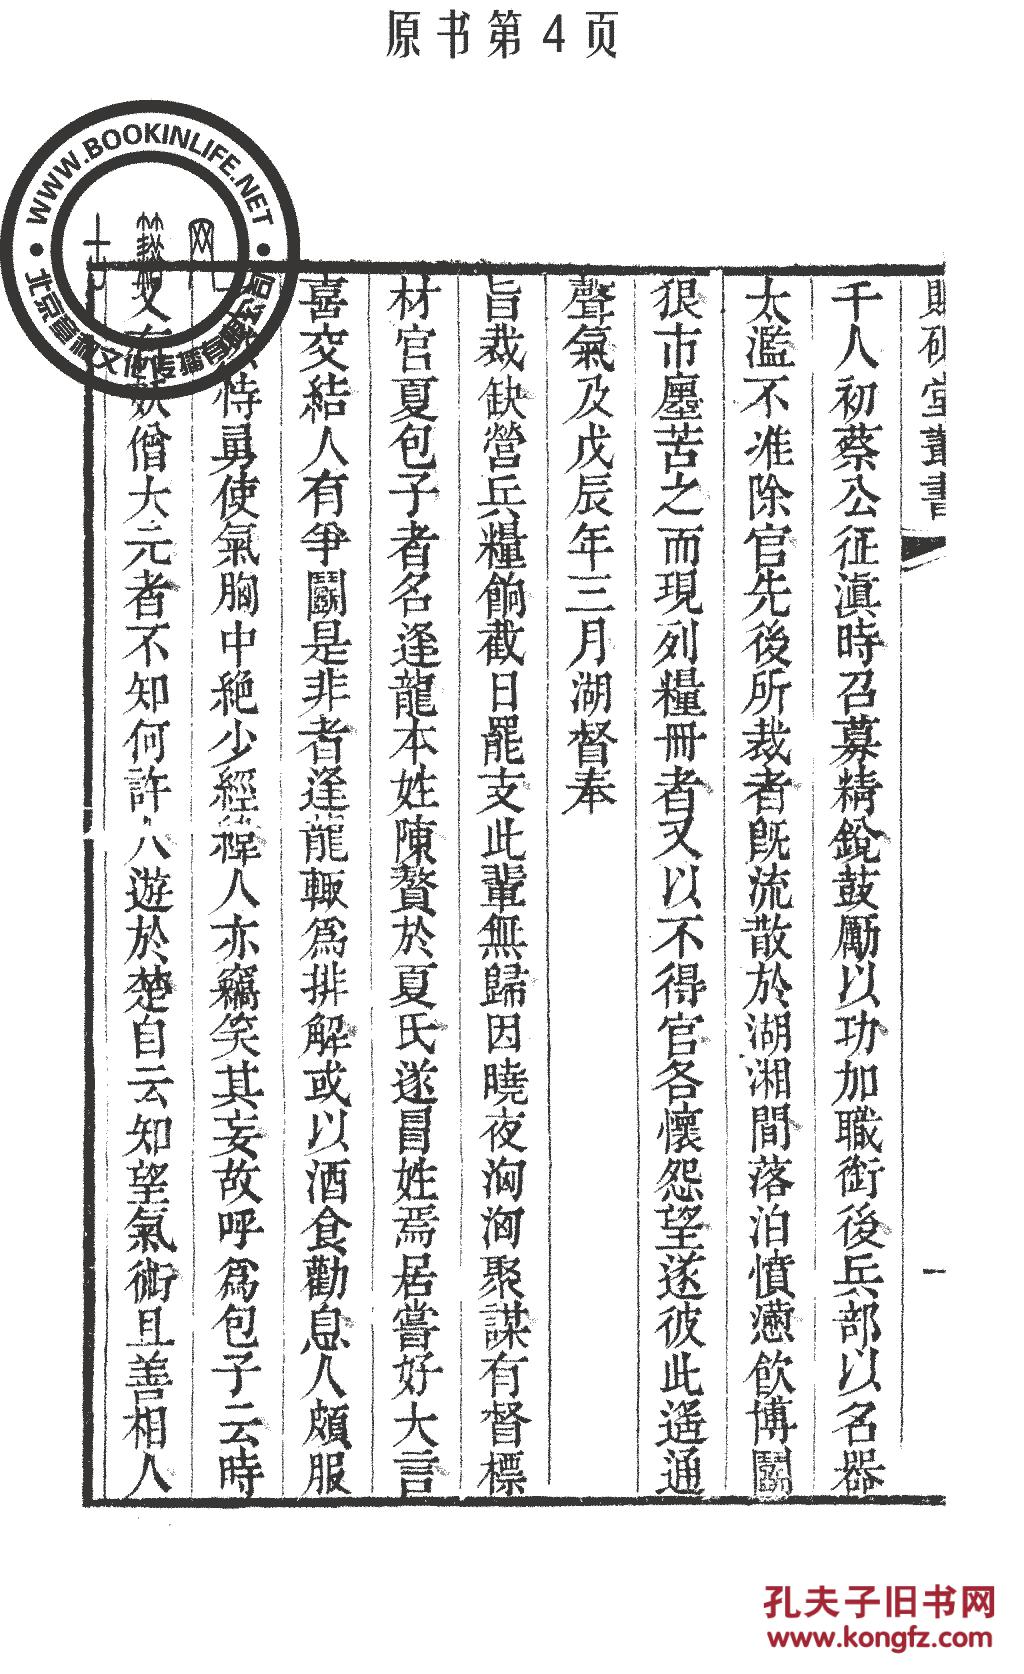 原书第4页
WWW.BOOKINLIFE.NET
北京 文化传播有限公司
堂叢書
一
千人初蔡公征滇時召募精銳鼓勵以功加職銜後兵部以名器
太濫不准除官先後所裁者旣流散於湖湘間落泊憤懣飲博鬭
狠市廛苦之而現列糧冊者又以不得官各懷怨望遂彼此遙通
聲氣及戊辰年三月湖督奉
旨裁缺營兵糧餉截日罷支此輩無歸因曉夜洶洶聚謀有督標
材官夏包子者名逢龍本姓陳贅於夏氏遂冒姓焉居嘗好大言
喜交結人有爭鬭是非者逢龍輙爲排解或以酒食勸息人頗服
恃勇使氣胸中絕少經緯人亦竊笑其妄故呼爲包子云時
又有妖僧大元者不知何許人遊於楚自云知望氣術且善相人
孔夫子旧书网
www.kongfz.com